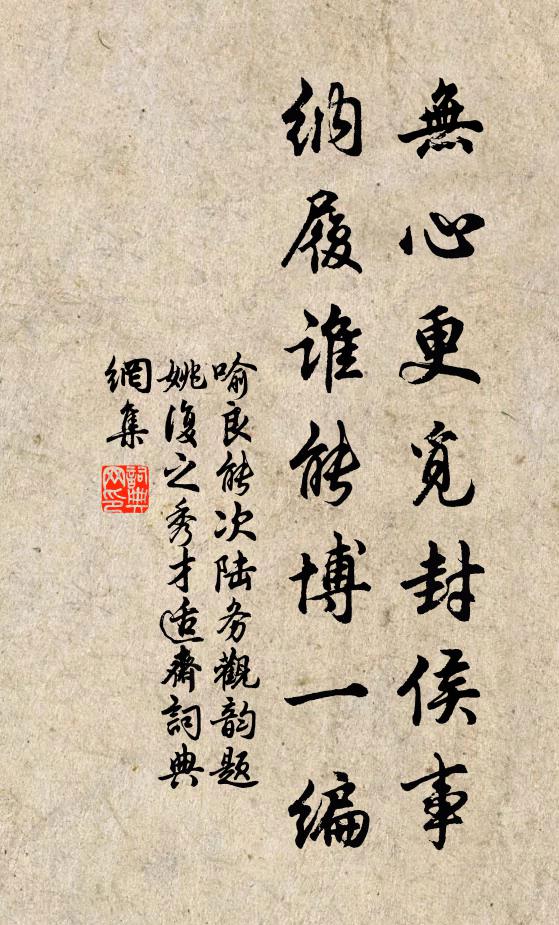 無心更覓封侯事
納履誰能博一编
喻良能次陆务觀韵题
姚復之秀才适齋詞典
網集
詞典网印